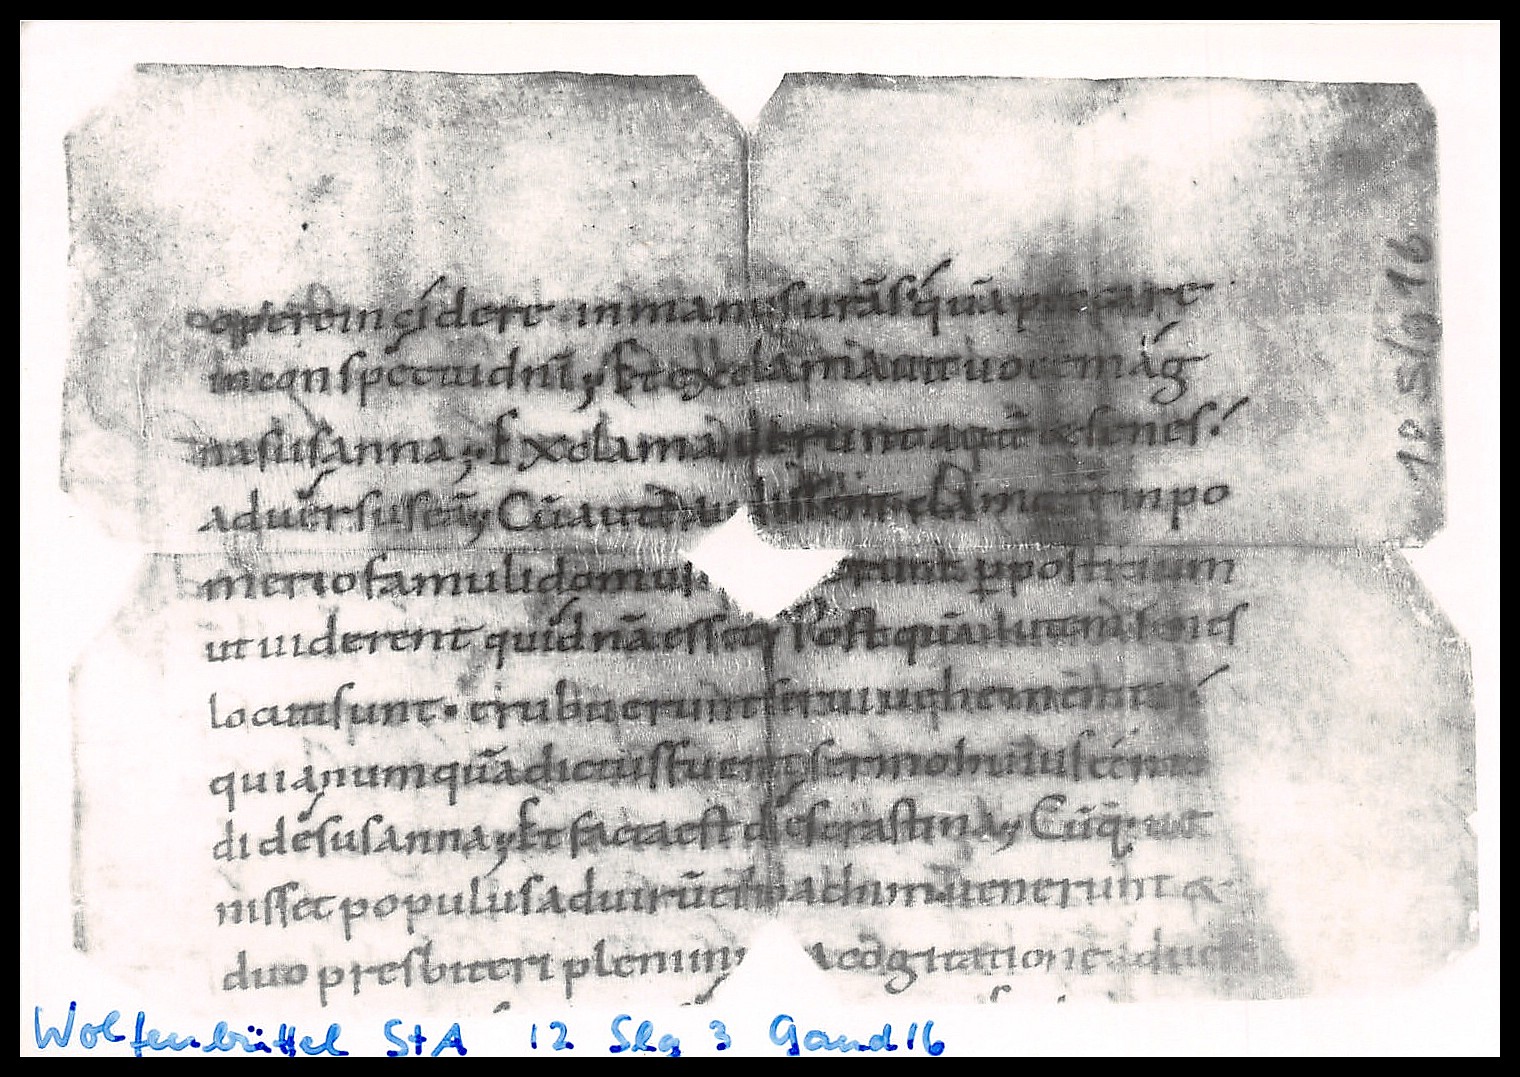 opere incidere in manus urās quā peccare
in conspectu dnī; Et exclamauit uoce mag
na susanna; Exclamauerunt autē & senes.
Aduersus eā; Cū autē audissent clamorē in po
merio famuli domus runt p̱ posticum
ut uiderent quid nā esset; Postquā autem senes
locuti sunt · erubuerunt serui uehementer
quia numquā dictus fuerat sermo huiusce mo
di de susanna; Et facta est dies crastina; Cūq; ue
nisset populus ad uirū ei ioachim uenerunt &
duo presbiteri pleni iniqua cogitatione adue
12 Slg 16
Wolfenbüttel StA 12 Slg 3 Gand 16